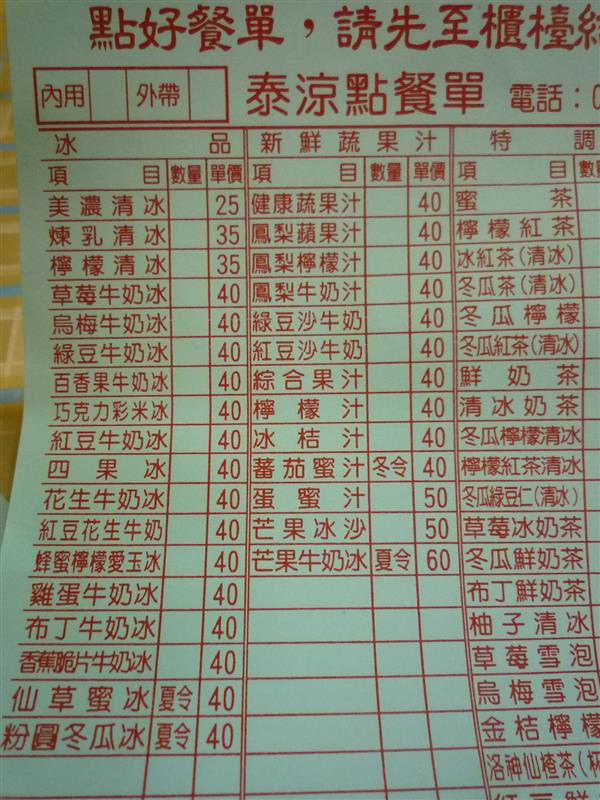 點好餐單，請先至櫃檯結
內用 外帶 泰涼點餐單 電話：0
冰品 新鮮蔬果汁 特調
項目 數量 單價 項目 數量 單價 項目 數量
美濃清冰 25 健康蔬果汁 40 蜜茶
煉乳清冰 35 鳳梨蘋果汁 40 檸檬紅茶
檸檬清冰 35 鳳梨檸檬汁 40 冰紅茶(清冰)
草莓牛奶冰 40 鳳梨牛奶汁 40 冬瓜茶(清冰)
烏梅牛奶冰 40 綠豆沙牛奶 40 冬瓜檸檬
綠豆牛奶冰 40 紅豆沙牛奶 40 冬瓜紅茶(清冰)
百香果牛奶冰 40 綜合果汁 40 鮮奶茶
巧克力彩米冰 40 檸檬汁 40 清冰奶茶
紅豆牛奶冰 40 冰桔汁 40 冬瓜檸檬清冰
四果冰 40 蕃茄蜜汁 冬令 40 檸檬紅茶清冰
花生牛奶冰 40 蛋蜜汁 50 冬瓜綠豆仁(清冰)
紅豆花生牛奶 40 芒果冰沙 50 草莓冰奶茶
蜂蜜檸檬愛玉冰 40 芒果牛奶冰 夏令 60 冬瓜鮮奶茶
雞蛋牛奶冰 40 布丁鮮奶茶
布丁牛奶冰 40 柚子清冰
香蕉脆片牛奶冰 40 草莓雪泡
仙草蜜冰 夏令 40 烏梅雪泡
粉圓冬瓜冰 夏令 40 金桔檸檬
洛神仙楂茶(杯